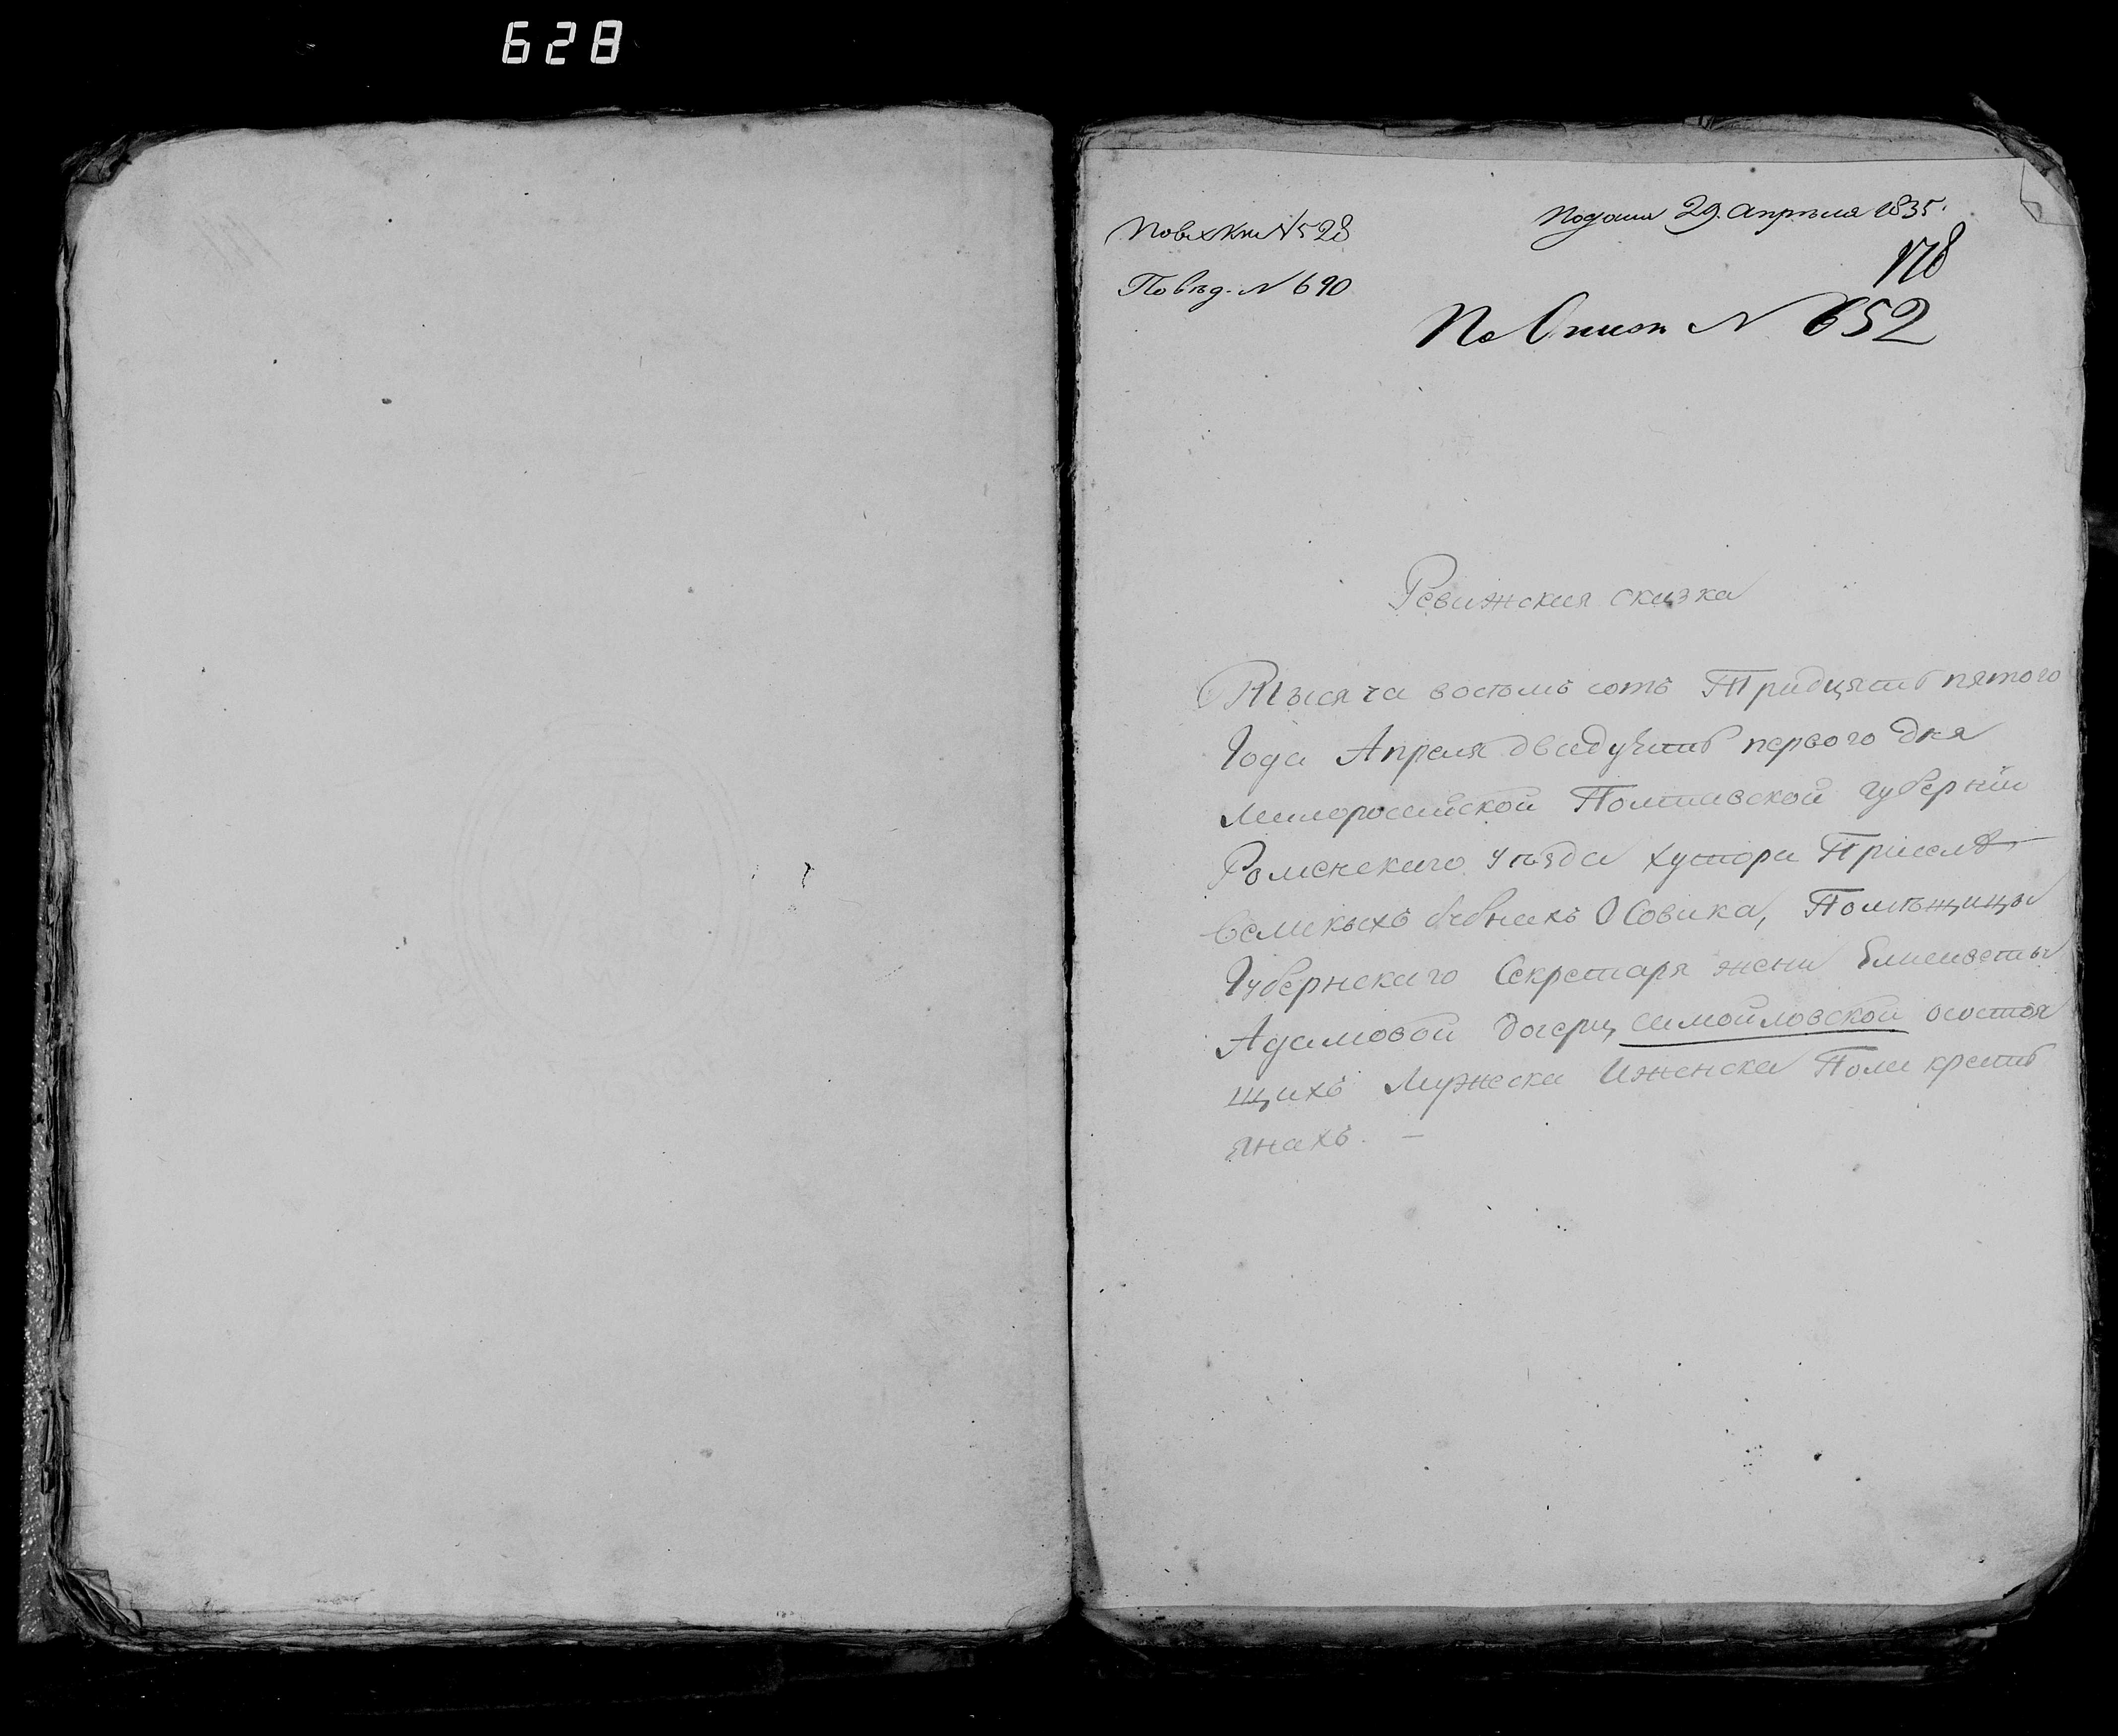 628
Подана 29. Апрѣля 1835.
По вх Кни № 528
178
По вѣд. № 690
По Описи № 652
Ревижская сказка
Тысяча восемь сотъ Тридцять пятого
Года Апреля двадцять первого дня
Малоросийской Полтавской губернїи
Роменскаго уѣзда хутора При селѣ
великыхъ Осовика, Помѣщицы
Губернскаго Секретаря жены Елисаветы
Адамовой дочери, самойловской осостоя
щихъ Мужеска Иженска Пола кресть
янахъ. —